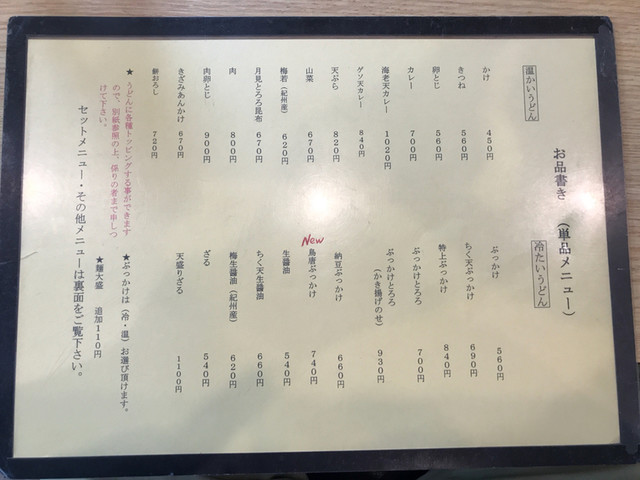 お品書き（単品メニュー）
温かいうどん
かけ 450円
きつね 560円
卵とじ 560円
カレー 700円
海老天カレー 1020円
ゲソ天カレー 840円
天ぷら 820円
山菜 670円
梅若（紀州産） 620円
月見とろろ昆布 670円
肉 800円
肉卵とじ 900円
きざみあんかけ 670円
餅おろし 720円
★うどんに各種トッピングする事ができます
ので、別紙参照の上、係りの者まで申しつ
けて下さい。
冷たいうどん
ぶっかけ 560円
ちく天ぶっかけ 690円
特上ぶっかけ 840円
ぶっかけとろろ 700円
ぶっかけとろろ
（かき揚げのせ） 930円
納豆ぶっかけ 660円
New
鳥唐ぶっかけ 740円
生醤油 540円
ちく天生醤油 660円
梅生醤油（紀州産） 620円
ざる 540円
天盛りざる 1100円
★ぶっかけは（冷・温）お選び頂けます。
★麺大盛 追加110円
セットメニュー・その他メニューは裏面をご覧下さい。